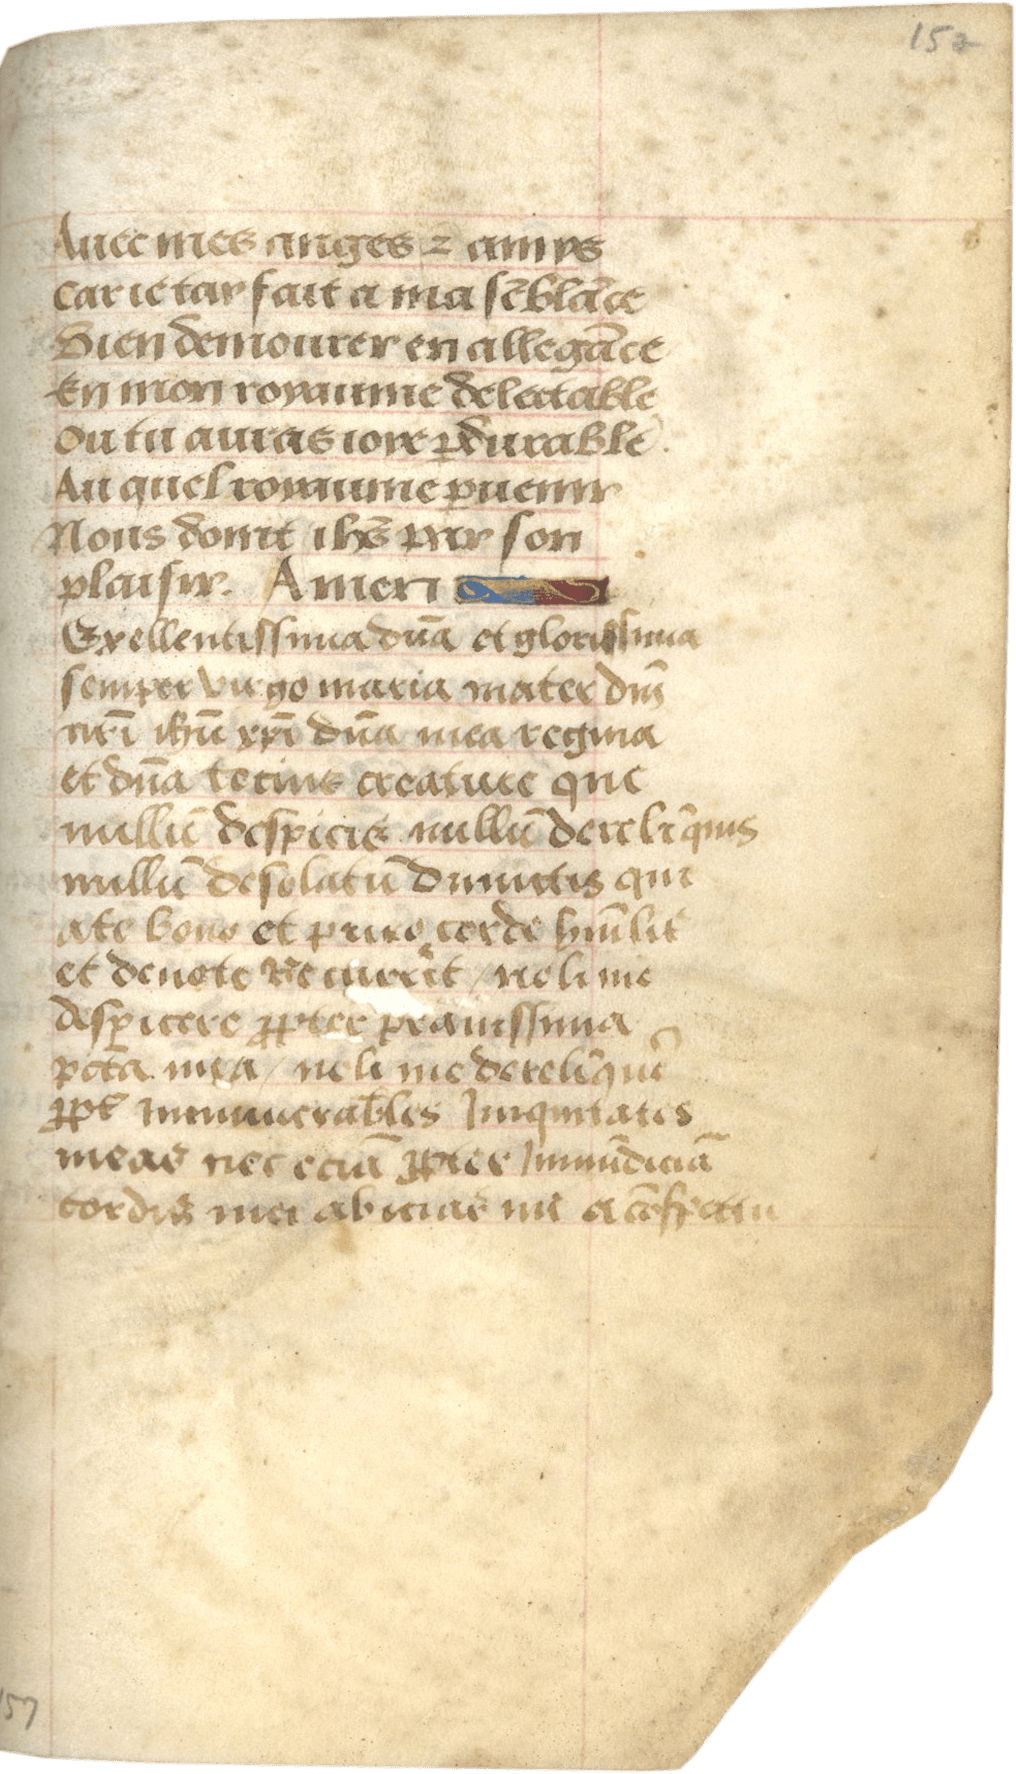 152
Auec mes anges ⁊ amys
Car ie tay fait a ma sẽblãce
Bien demourer en allegãce
En mon royaume delectable
Ou tu auras ioye ꝑdurable.
Au quel royaume ꝑuenir
Nous doint ihũs par son
plaisir. Amen
Exellentissima dña et gloriissima
semper virgo maria mater dñi
nr̃i ihũ xp̃i dña mea regina
et dña tocius creature que
nullũ despicis nullũ derelĩquis
nullũ desolatũ dimictis qui
ate bono et puro corde hũilit̃
et deuote recurrit / noli me
despicere ꝓpter prauissima
pctã mea / noli me derelĩquẽ
ꝓpt̃ Innumerabiles Iniquitates
meas nec eciã ꝓpter Inmũdiciã
cordis mei abicias me a cõspectu
157